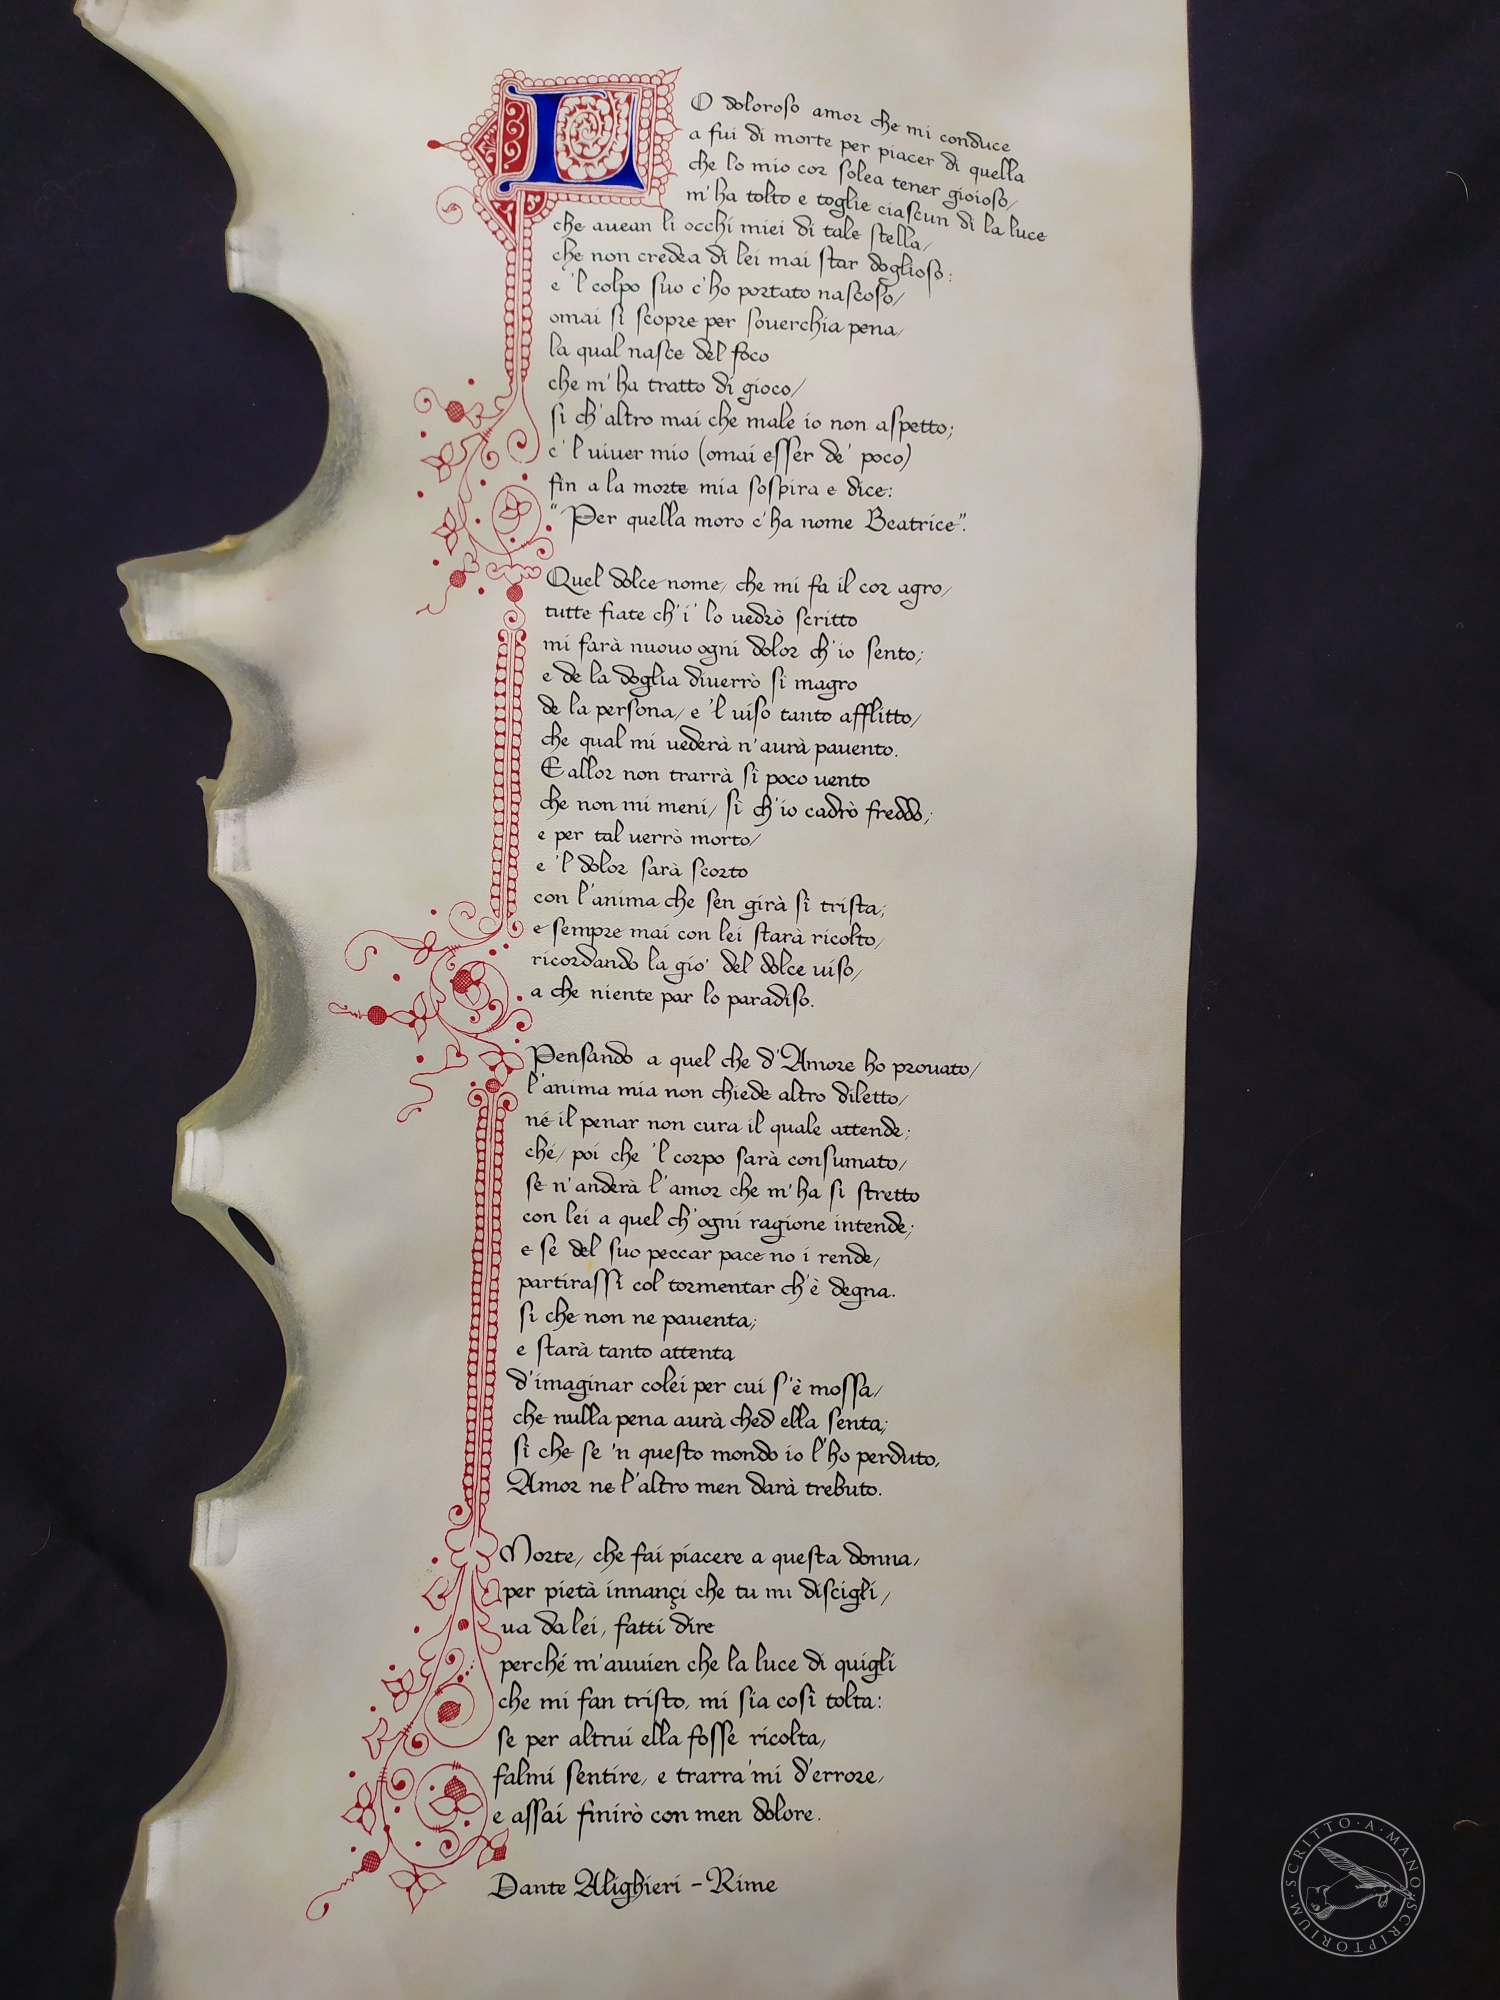 LO doloroso amor che mi conduce
a fui di morte per piacer di quella
che lo mio cor solea tener gioioso/
m'ha tolto e toglie ciascun di la luce
che auean li occhi miei di tale stella/
che non credea di lei mai star doglioso:
e 'l colpo suo c'ho portato nascoso/
omai si scopre per souerchia pena/
la qual nasce del foco
che m'ha tratto di gioco/
sì ch'altro mai che male io non aspetto;
e 'l uiuer mio (omai esser de' poco)
fin a la morte mia sospira e dice:
"Per quella moro c'ha nome Beatrice".
Quel dolce nome/ che mi fa il cor agro/
tutte fiate ch'i' lo uedrò scritto
mi farà nuouo ogni dolor ch'io sento;
e de la doglia diuerrò sì magro
de la persona/ e 'l uiso tanto afflitto/
che qual mi uederà n'aurà pauento.
E allor non trarrà sì poco uento
che non mi meni/ sì ch'io cadrò freddo;
e per tal uerrò morto/
e 'l dolor sarà scorto
con l'anima che sen girà sì trista;
e sempre mai con lei starà ricolto/
ricordando la gio' del dolce uiso/
a che niente par lo paradiso.
Pensando a quel che d'Amore ho prouato/
l'anima mia non chiede altro diletto/
né il penar non cura il quale attende;
ché/ poi che 'l corpo sarà consumato/
se n'anderà l'amor che m'ha sì stretto
con lei a quel ch'ogni ragione intende;
e se del suo peccar pace no i rende/
partirassi col tormentar ch'è degna.
sì che non ne pauenta;
e starà tanto attenta
d'imaginar colei per cui s'è mossa/
che nulla pena aurà ched ella senta;
sì che se 'n questo mondo io l'ho perduto,
Amor ne l'altro men darà trebuto.
Morte/ che fai piacere a questa donna/
per pietà innançi che tu mi discigli/
ua da lei, fatti dire
perché m'auuien che la luce di quigli
che mi fan tristo, mi sia così tolta:
se per altrui ella fosse ricolta,
falmi sentire, e trarra'mi d'errore/
e assai finirò con men dolore.
Dante Alighieri - Rime
SCRITTO·A·MANO·SCRIPTORIUM·